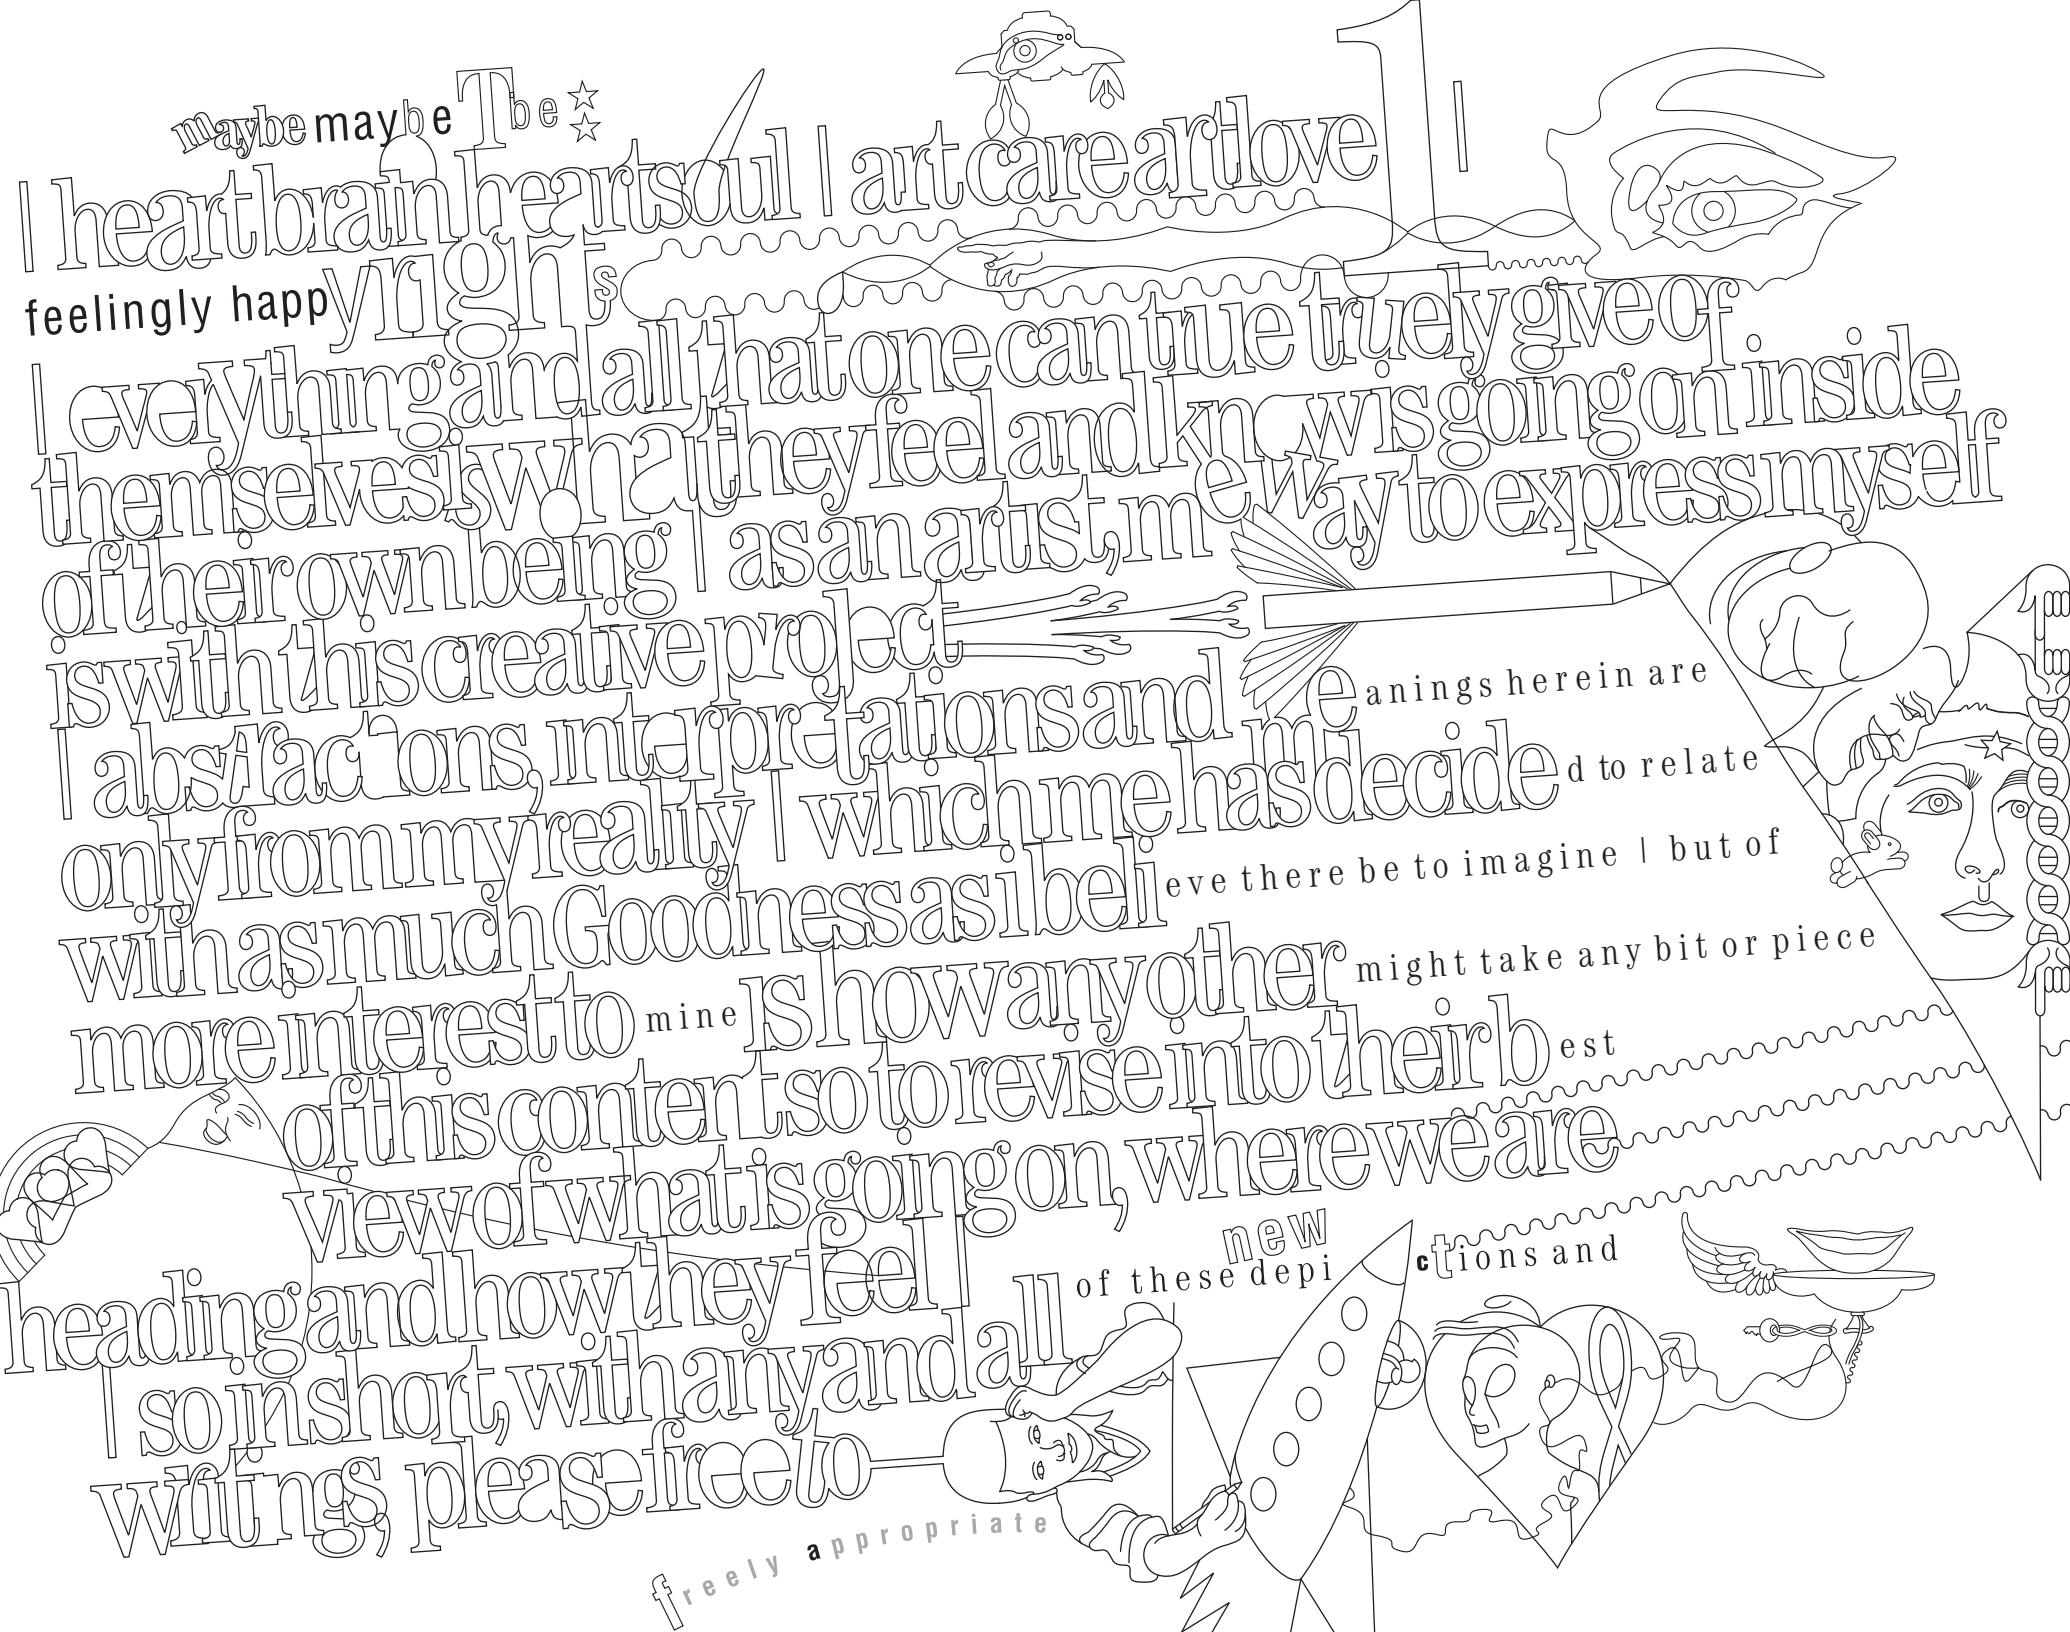 maybe maybe The
| heart brain heart soul | art care art love 1 |
feelingly happy rights
| everything and all that one can true truely give of
themselves is what they feel and know is going on inside
of their own being | as an artist, me way to express myself
is with this creative project
| abstractions, interpretations and meanings herein are
only from my reality | which me has decided to relate
with as much Goodness as i believe there be to imagine | but of
more interest to mine is how any other might take any bit or piece
of this content so to revise into their best
view of what is going on, where we are
heading and how they feel |
new
| so in short, with any and all of these depictions and
writings, please free to
freely appropriate